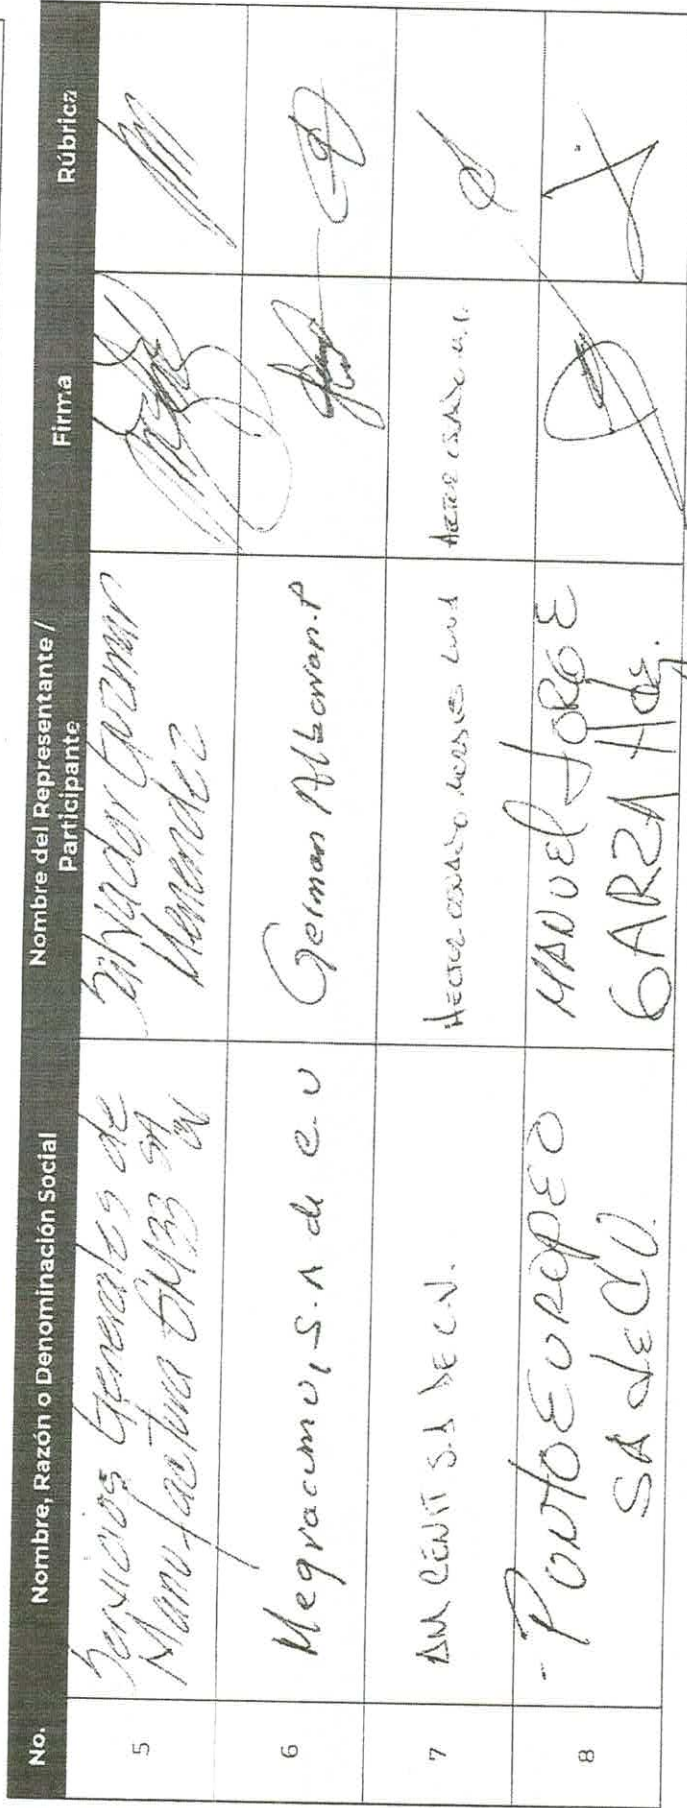 No. Nombre, Razón o Denominación Social Nombre del Representante / Participante Firma Rúbrica
5
Servicios Generales de
Manufactura GM33 SA
CV
Salvador Guzman
Menendez
6
Megracumv, S.A de C.V
German Albarran.P
7
AM CENIT S.A DE C.V.
HECTOR
8
- PUNTO EUROPEO
SA de CV.
MANUEL JORGE
GARZA Hdz.